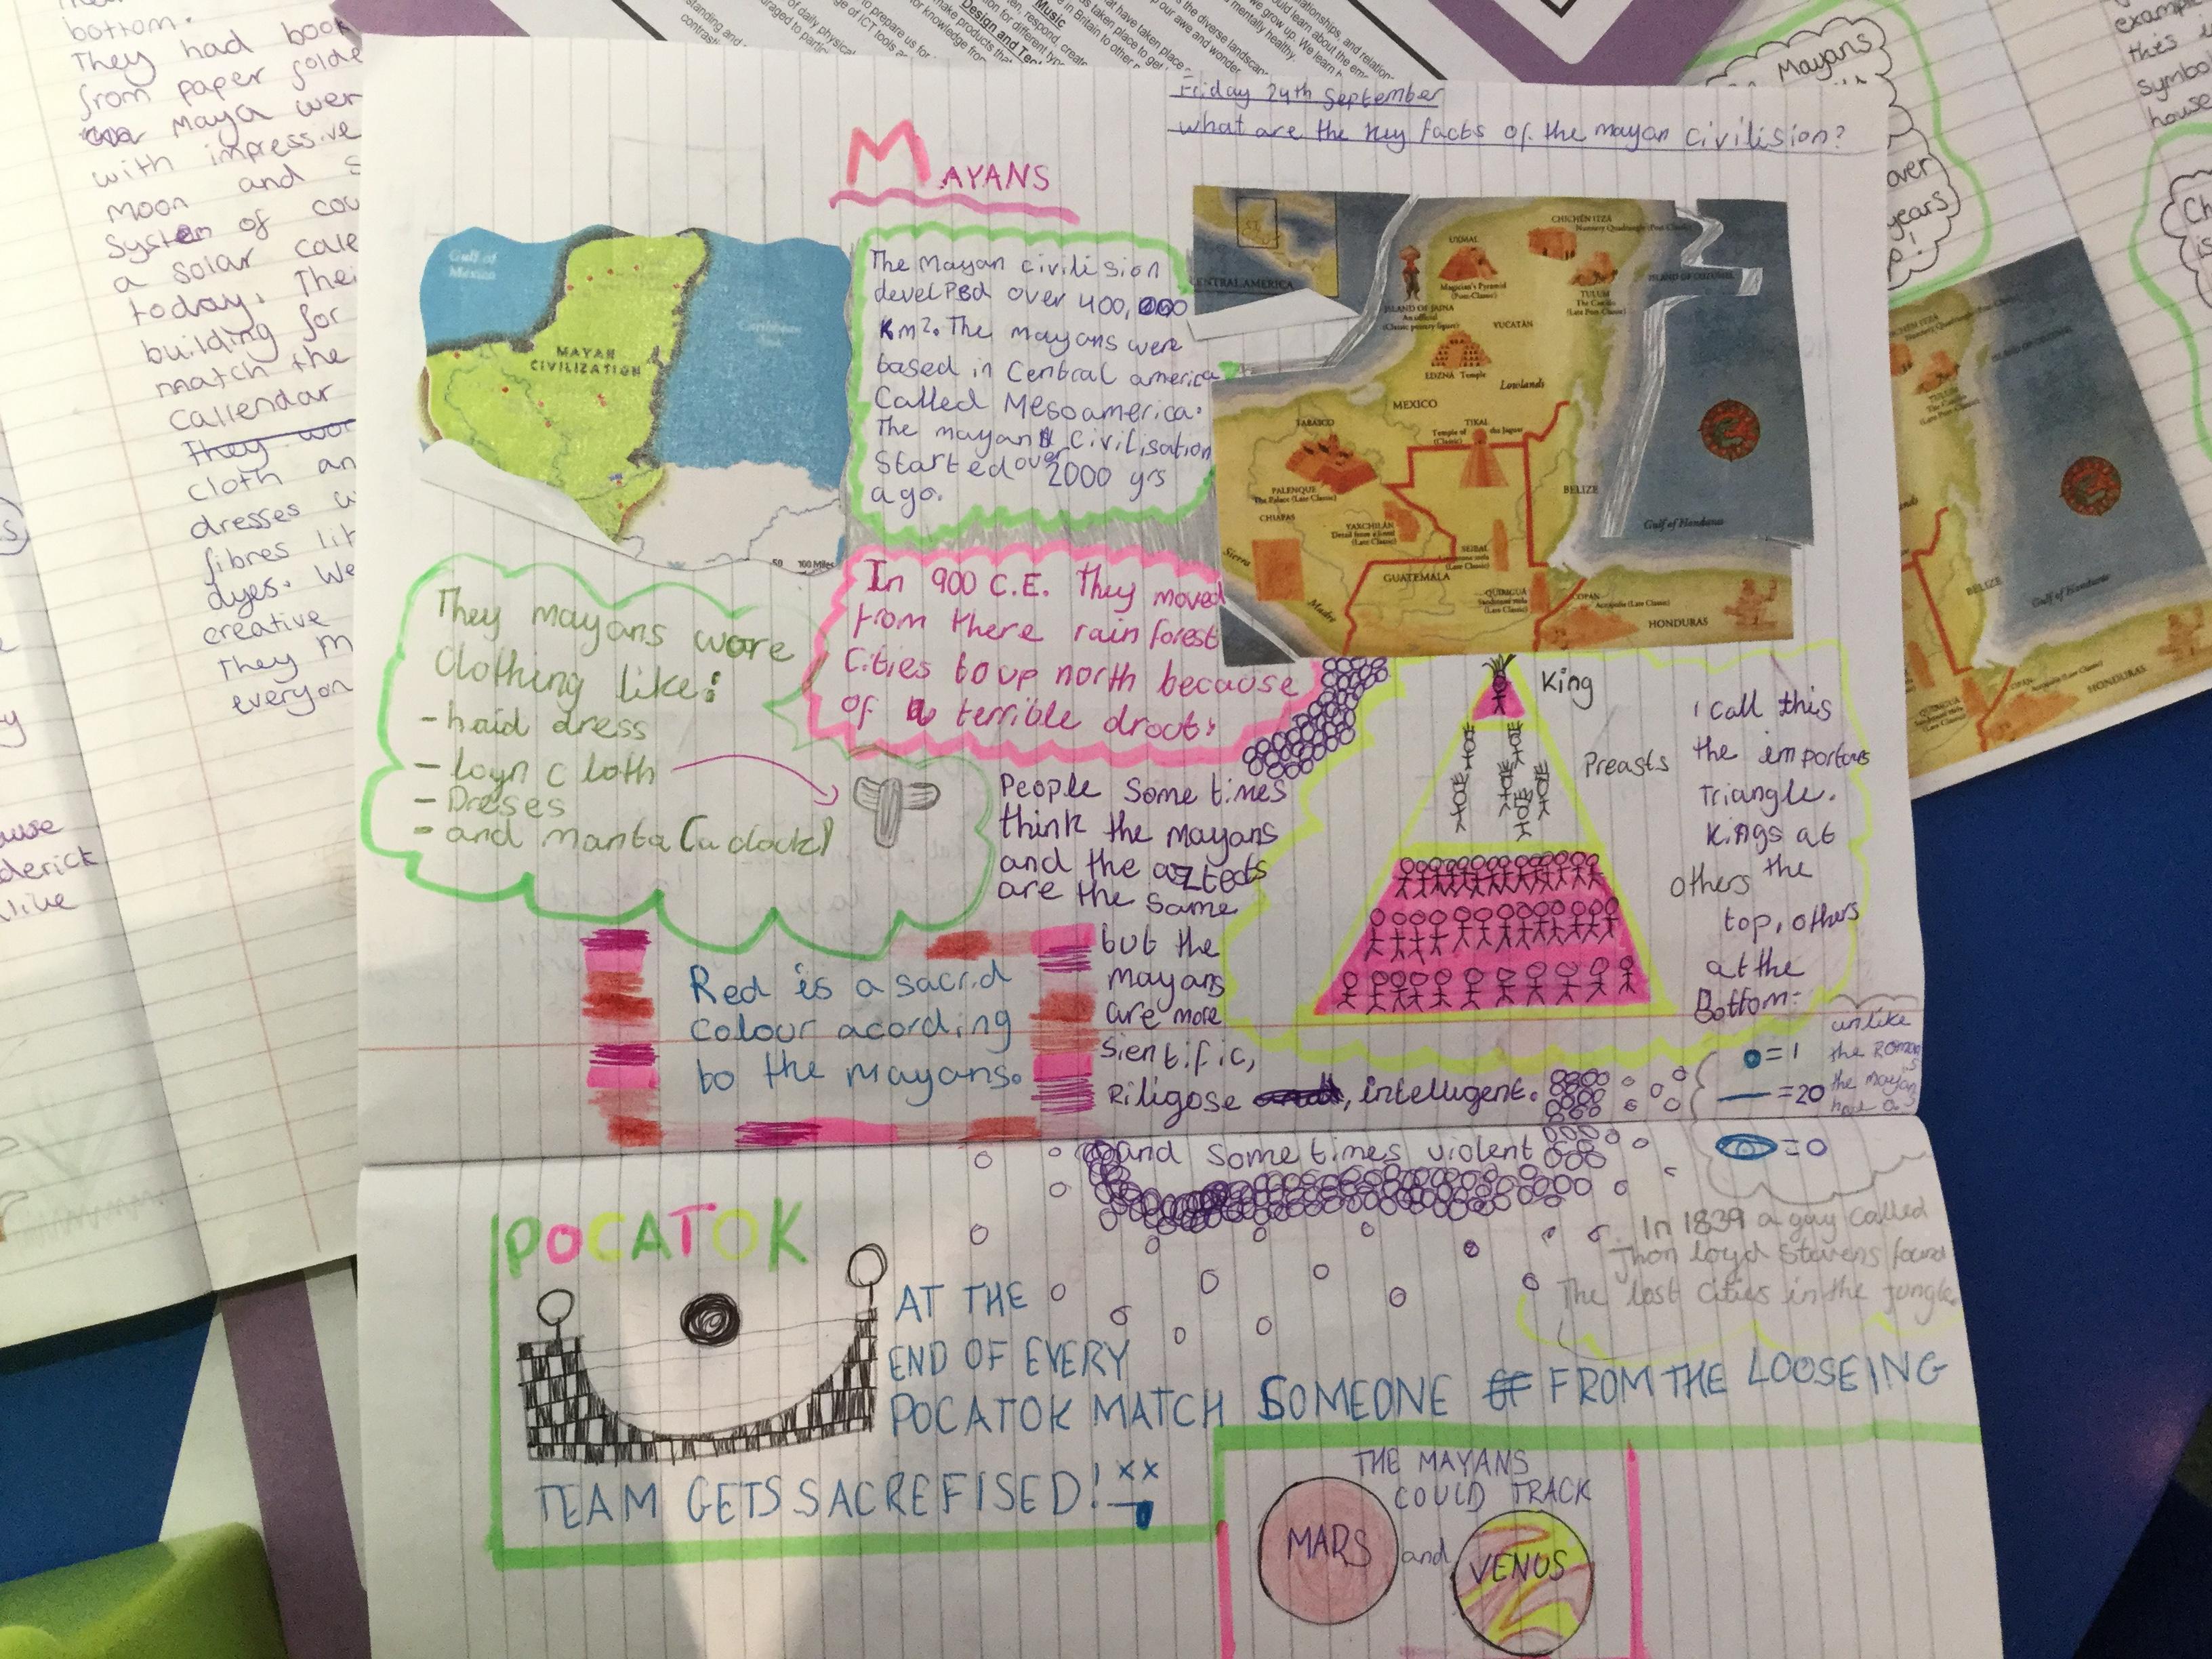 Friday 24th September
What are the key facts of the mayan civilision?
MAYANS
Gulf of
Mexico
Caribbean
Sea
MAYAN
CIVILIZATION
50 100 Miles
The mayan civilision
develPBd over 400,000
Km². The mayans were
based in Central america
Called Mesoamerica.
The mayan civilisation
Started over 2000 yrs
ago.
CENTRAL AMERICA
CHICHEN ITZA
Nunnery Quadrangle (Post Classic)
UXMAL
Magician's Pyramid
(Post-Classic)
ISLAND OF JAINA
An official
(Classic pottery figure)
TULUM
The Castillo
(Late Post Classic)
ISLAND OF COZUMEL
YUCATÁN
EDZNÁ Temple
Lowlands
MEXICO
TABASCO
TIKAL
Temple of the Jaguar
(Classic)
PALENQUE
The Palace (Late Classic)
BELIZE
CHIAPAS
YAXCHILÁN
Detail from a lintel
(Late Classic)
Gulf of Honduras
SEIBAL
Sierra
Madre
GUATEMALA
QUIRIGUÁ
Sandstone stela
(Late Classic)
COPÁN
Acropolis (Late Classic)
HONDURAS
They mayans wore
Clothing like:
- haid dress
- loyn cloth
- Dreses
- and manta (a clock)
In 900 C.E. They moved
from there rain forest
Cities to up north because
of a terrible droct:
People Some times
think the mayans
and the aztects
are the same
but the
mayans
are more
sientific,
Riligose, intellugent.
and some times violent
King
Preasts
I call this
the emportans
triangle.
Kings at
others the
top, others
at the
Bottom:
=1
=20
=0
unlike
the Romans
the mayans
have a
Red is a sacrid
Colour acording
to the mayans.
POCATOK
AT THE
END OF EVERY
POCATOK MATCH SOMEONE FROM THE LOOSEING
TEAM GETS SACREFISED! xx
In 1839 a guy called
Jhon loyd Stevens found
The lost Cities in the Jungle.
THE MAYANS
COULD TRACK
MARS and VENUS
bottom.
They had book
from paper folde
Maya wer
with impressive
moon and s
System of cou
a solar cale
today. Thei
building for
match the
Callendar
They wor
cloth an
dresses w
fibres lit
dyes. We
creative
They m
everyon
derick
Mayans
over
years
example
this
symbol
house
Design and Tec
Music
BELIZE
Gulf of Honduras
HONDURAS